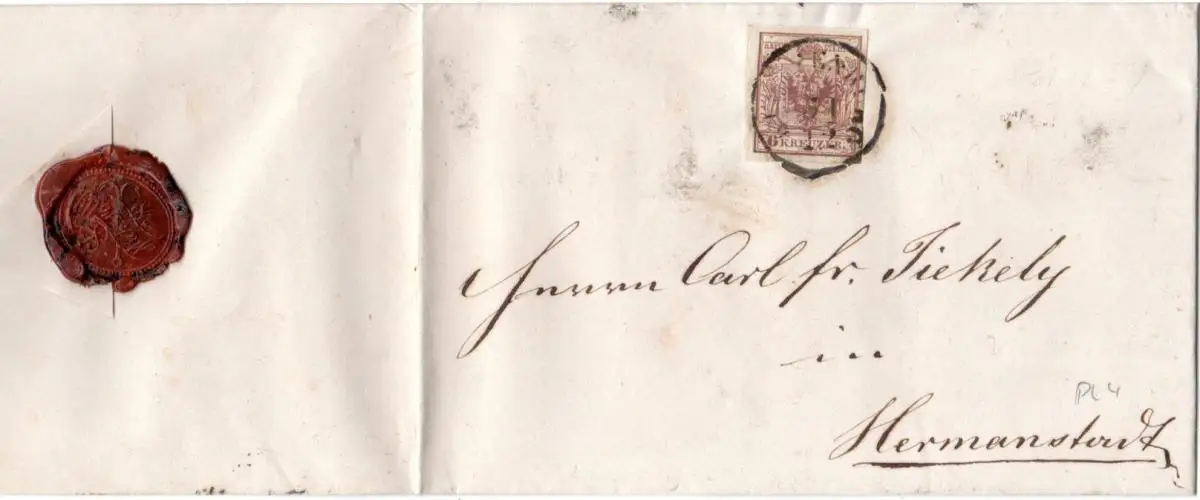 6 KREUZER
Herrn Carl fr. Jickely
in
Hermanstadt